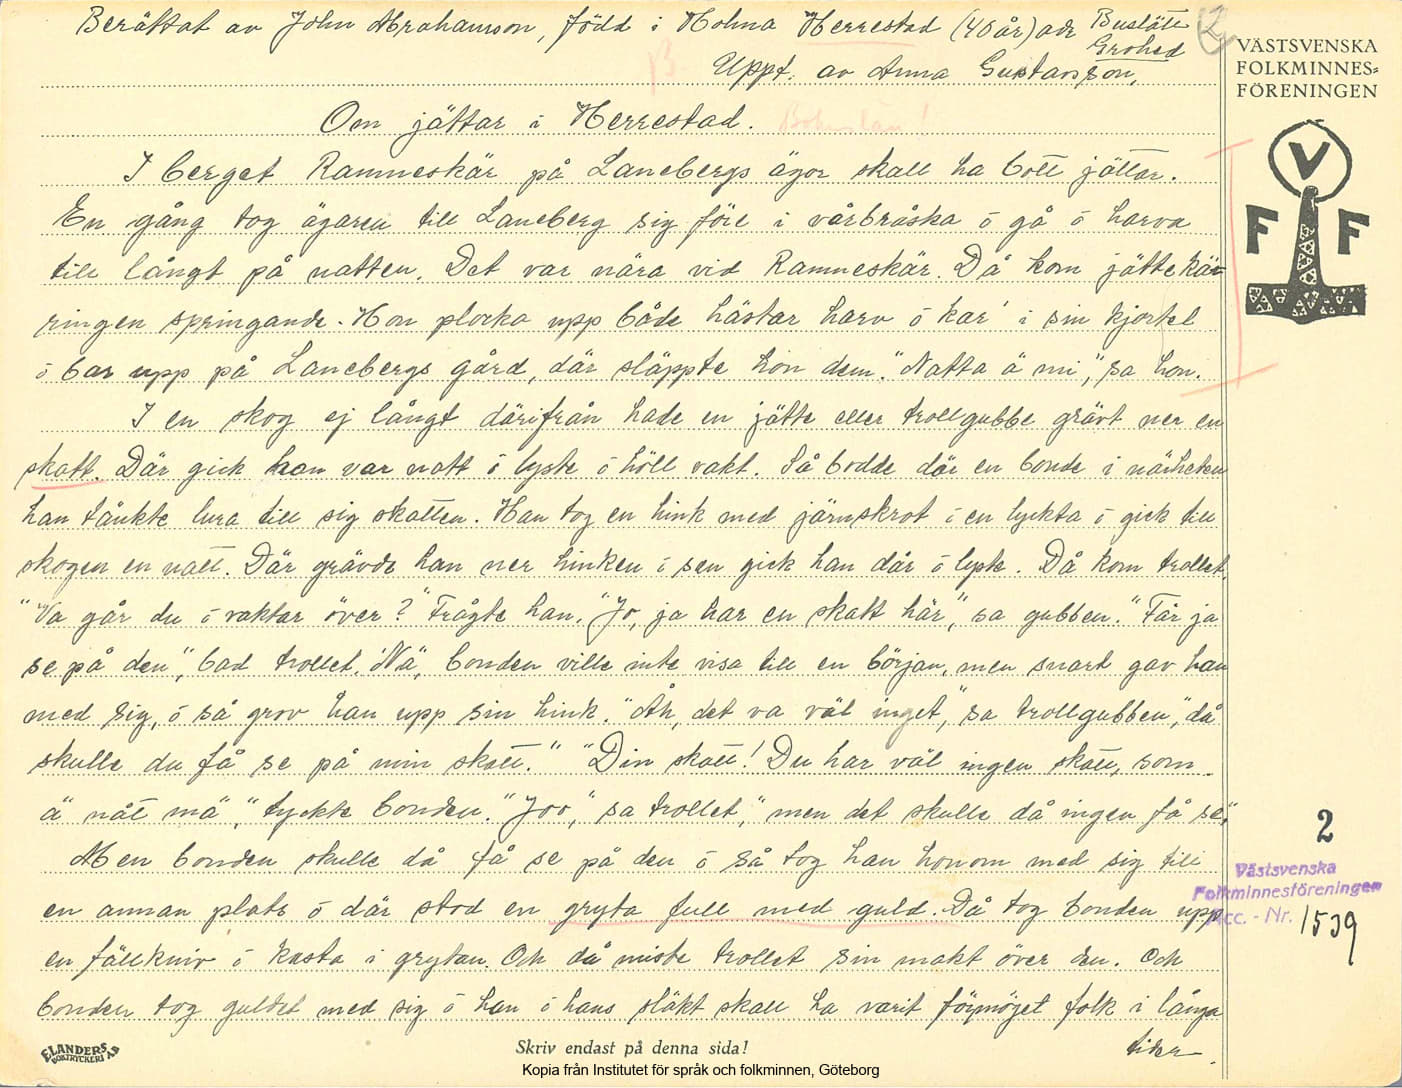 Berättat av John Abrahamson, född i Holma Herrestad (40 år) adr Buslätt
Grohed
Uppt. av Anna Gustavsson,
B.
2
VÄSTSVENSKA
FOLKMINNES=
FÖRENINGEN
V
F F
Om jättar i Herrestad. Bohuslän!
I berget Ramneskär på Lanebergs ägor skall ha bott jättar.
En gång tog ägaren till Laneberg sig före i vårbråska ō gå ō harva
till långt på natten. Det var nära vid Ramneskär. Då kom jättekär-
ringen springande. Hon plocka upp både hästar harv ō kar' i sin kjortel
ō bar upp på Lanebergs gård, där släppte hon dem. "Natta ä mi", sa hon.
I en skog ej långt därifrån hade en jätte eller trollgubbe grävt ner en
skatt. Där gick han var natt ō lyste ō höll vakt. Så bodde där en bonde i närheten
han tänkte lura till sig skatten. Han tog en hink med järnskrot ō en lyckta ō gick till
skogen en natt. Där grävde han ner hinken ō sen gick han där ō lyste. Då kom trollet.
"Va går du ō vaktar över?" frågte han. "Jo, ja har en skatt här", sa gubben. "Får ja
se på den", bad trollet. "Nä", bonden ville inte visa till en början, men snart gav han
med sig, ō så grov han upp sin hink. "Åh, det va väl inget", sa trollgubben, "då
skulle du få se på min skatt." "Din skatt! Du har väl ingen skatt, som
ä nåt mä", tyckte bonden. "Joo", sa trollet, "men det skulle då ingen få se."
Men bonden skulle då få se på den ō så tog han honom med sig till
en annan plats ō där stod en gryta full med guld. Då tog bonden upp
en fällkniv ō kasta i grytan. Och då miste trollet sin makt över den. Och
bonden tog guldet med sig ō han ō hans släkt skall ha varit förmöget folk i långa
tider.
2
Västsvenska
Folkminnesföreningen
Acc. - Nr. 1539
ELANDERS
BOKTRYCKERI AB
Skriv endast på denna sida!
Kopia från Institutet för språk och folkminnen, Göteborg